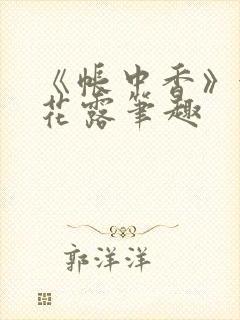 《帐中香》
花露笔趣
郭洋洋